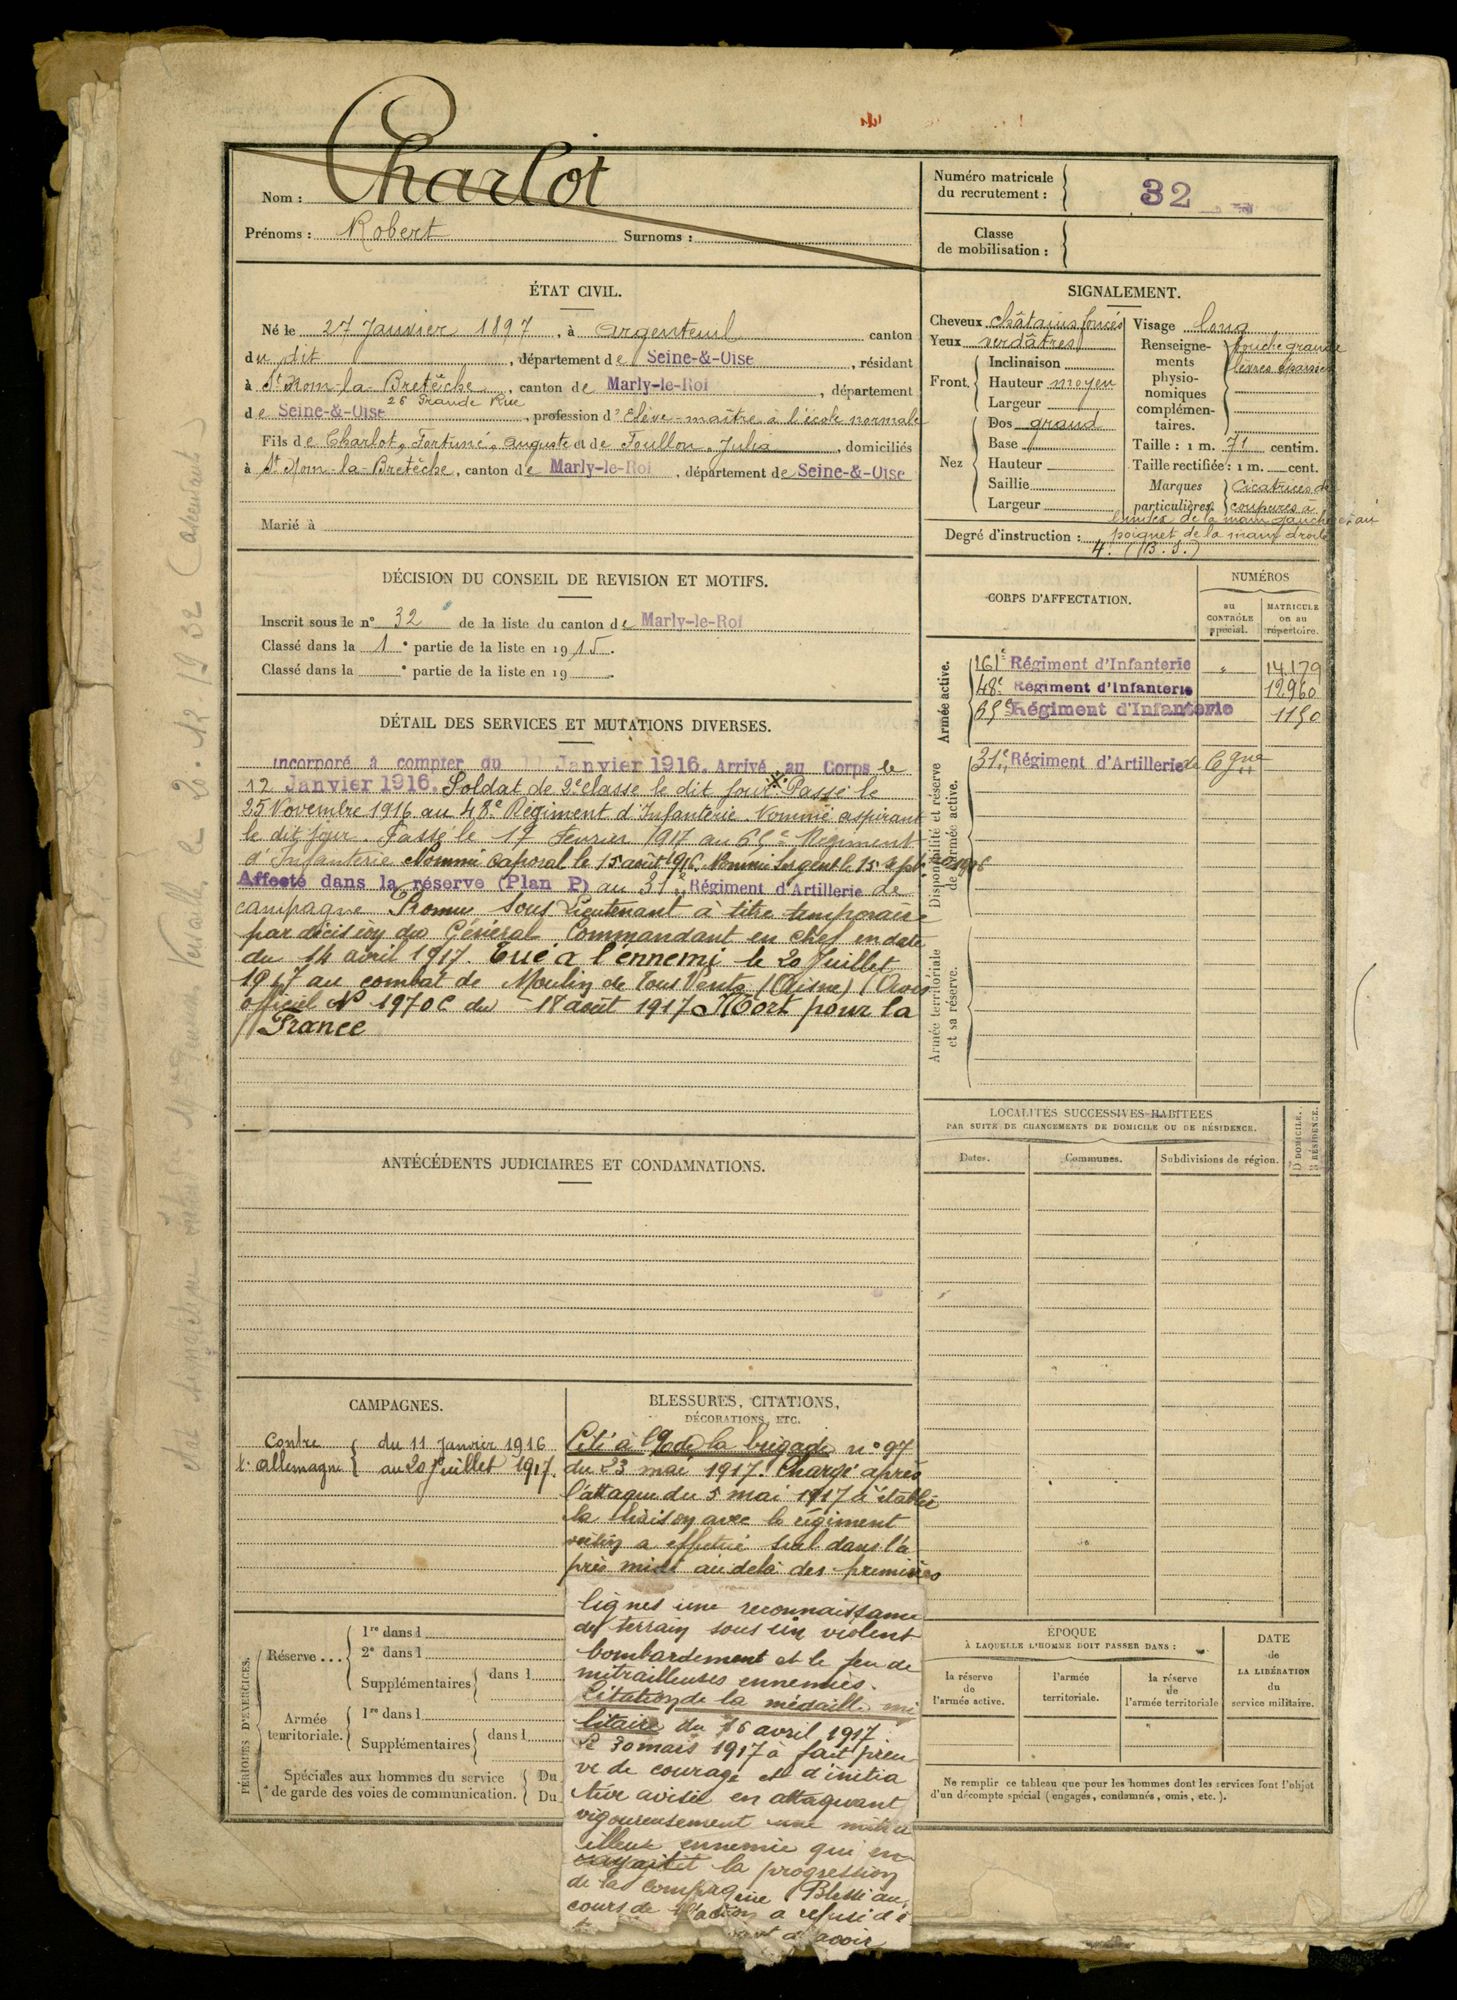 Charlot
Nom :
Prénoms : Robert Surnoms :
Numéro matricule
du recrutement : 32
Classe
de mobilisation :
ÉTAT CIVIL.
Né le 27 Janvier 1897, à Argenteuil canton
du dit, département de Seine-&-Oise, résidant
à St Nom-la-Bretèche, canton de Marly-le-Roi, département
26 Grande Rue
de Seine-&-Oise, profession d'Elève-maître à l'école normale
Fils de Charlot, Fortuné, Auguste et de Foullon, Julia, domiciliés
à St Nom-la-Bretèche, canton de Marly-le-Roi, département de Seine-&-Oise
Marié à
SIGNALEMENT.
Cheveux châtains foncés
Yeux verdâtres
Front. Inclinaison
Hauteur moyen
Largeur
Nez Dos grand
Base
Hauteur
Saillie
Largeur
Visage long
Renseigne- bouche grande
ments lèvres épaisses
physio-
nomiques
complémen-
taires.
Taille : 1 m. 71 centim.
Taille rectifiée : 1 m. cent.
Marques Cicatrices de
particulières. coupures à
l'index de la main gauche et au
Degré d'instruction : poignet de la main droite
4. (B.S.)
DÉCISION DU CONSEIL DE REVISION ET MOTIFS.
Inscrit sous le n° 32 de la liste du canton de Marly-le-Roi
Classé dans la 1° partie de la liste en 1915.
Classé dans la ° partie de la liste en 19 .
DÉTAIL DES SERVICES ET MUTATIONS DIVERSES.
Incorporé à compter du 11 Janvier 1916. Arrivé au Corps le
12 Janvier 1916. Soldat de 2e classe le dit jour. Passé le
25 Novembre 1916 au 48e Régiment d'Infanterie. Nommé aspirant
le dit jour. Passé le 17 Février 1917 au 65e Régiment
d'Infanterie Nommé Caporal le 15 août 1916. Nommé Sergent le 15 Septbre 1916
Affecté dans la réserve (Plan P) au 31e Régiment d'Artillerie de
campagne Promu Sous Lieutenant à titre temporaire
par décision du Général Commandant en chef en date
du 14 avril 1917. Tué à l'ennemi le 20 Juillet
1917 au combat de Moulin de Tous Vents (Aisne) (Avis
officiel N° 1970C du 17 août 1917 Mort pour la
France
CORPS D'AFFECTATION.
NUMÉROS
au
CONTRÔLE
spécial.
MATRICULE
ou au
répertoire.
Armée active.
161e Régiment d'Infanterie " 14179
48e Régiment d'Infanterie 12960
65e Régiment d'Infanterie 1150
Disponibilité et réserve
de l'armée active.
31e Régiment d'Artillerie de Cgne
Armée territoriale
et sa réserve.
LOCALITÉS SUCCESSIVES HABITÉES
PAR SUITE DE CHANGEMENTS DE DOMICILE OU DE RÉSIDENCE.
Dates.
Communes.
Subdivisions de région.
D DOMICILE.
R RÉSIDENCE.
ANTÉCÉDENTS JUDICIAIRES ET CONDAMNATIONS.
CAMPAGNES.
Contre du 11 Janvier 1916
l'Allemagne au 20 Juillet 1917.
BLESSURES, CITATIONS,
DÉCORATIONS, ETC.
Cité à l'O de la brigade n° 97
du 23 mai 1917. Chargé après
l'attaque du 5 mai 1917 d'établir
la liaison avec le régiment
voisin a effectué seul dans l'a
près midi au delà des premières
lignes une reconnaissance
du terrain sous un violent
bombardement et le feu de
mitrailleuses ennemies.
Citation de la médaille mi
litaire du 16 avril 1917
Le 30 mars 1917 à fait preu
ve de courage et d'initia
tive avisée en attaquant
vigoureusement une mitra
illeuse ennemie qui en
rayait la progression
de la compagnie Blessé au
cours de l'action a refusé d'ê
avoir
PÉRIODES D'EXERCICES.
Réserve... 1re dans l
2e dans l
Supplémentaires dans l
Armée
territoriale. 1re dans l
Supplémentaires dans l
Spéciales aux hommes du service Du
de garde des voies de communication. Du
ÉPOQUE
À LAQUELLE L'HOMME DOIT PASSER DANS :
la réserve
de
l'armée active.
l'armée
territoriale.
la réserve
de
l'armée territoriale
DATE
de
LA LIBÉRATION
du
service militaire.
Ne remplir ce tableau que pour les hommes dont les services font l'objet
d'un décompte spécial (engagés, condamnés, omis, etc.).